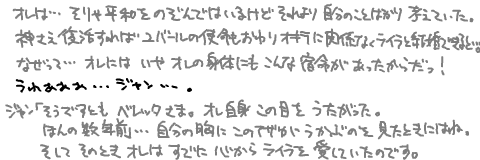 オレは… そりゃ平和をのぞんではいるけど それより自分のことばかり考えていた。
神さえ復活すれば ユバールの使命もおわり オキテに関係なくライラと結婚できると…。
なぜって… オレには いや オレの身体にもこんな宿命があったからだっ！
うわぁぁぁ…ジャン…。
ジャン「そうですとも ベレッタさま。オレ自身 この目をうたがった。
ほんの数年前… 自分の胸に このアザがうかぶのを 見たときにはね。
そして そのとき オレはすでに 心からライラを愛していたのです。